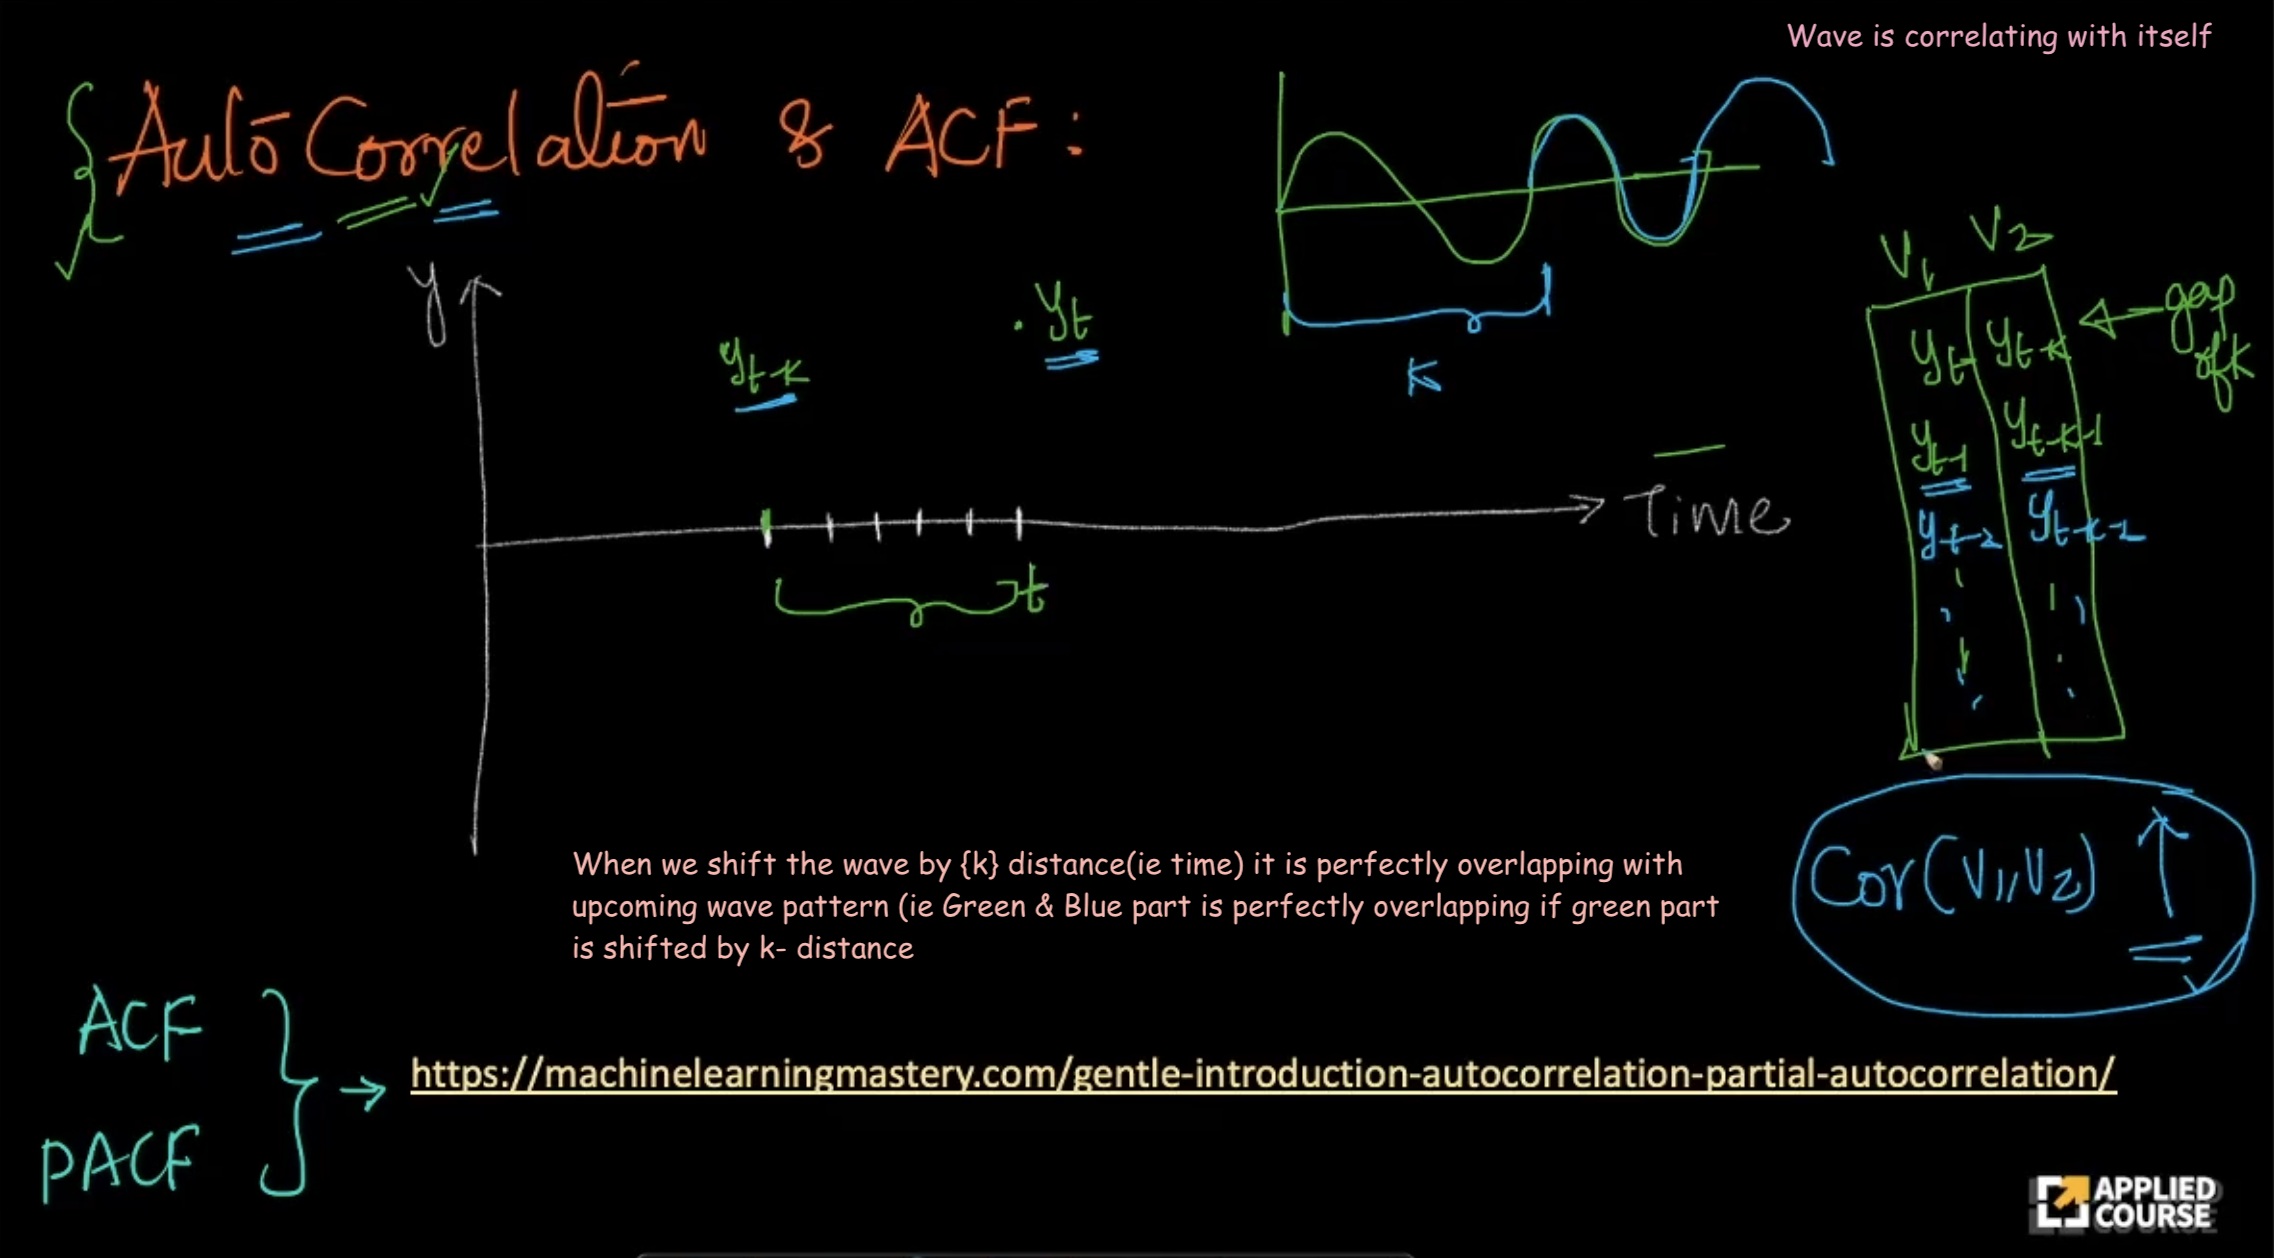 Wave is correlating with itself
Auto Correlation & ACF:
y
y_t-k
y_t
k
V1 V2
y_t y_t-k
gap of k
y_t-1 y_t-k-1
y_t-2 y_t-k-2
Time
t
Cor(V1, V2) ↑
When we shift the wave by {k} distance(ie time) it is perfectly overlapping with
upcoming wave pattern (ie Green & Blue part is perfectly overlapping if green part
is shifted by k- distance
ACF
PACF
https://machinelearningmastery.com/gentle-introduction-autocorrelation-partial-autocorrelation/
APPLIED
COURSE